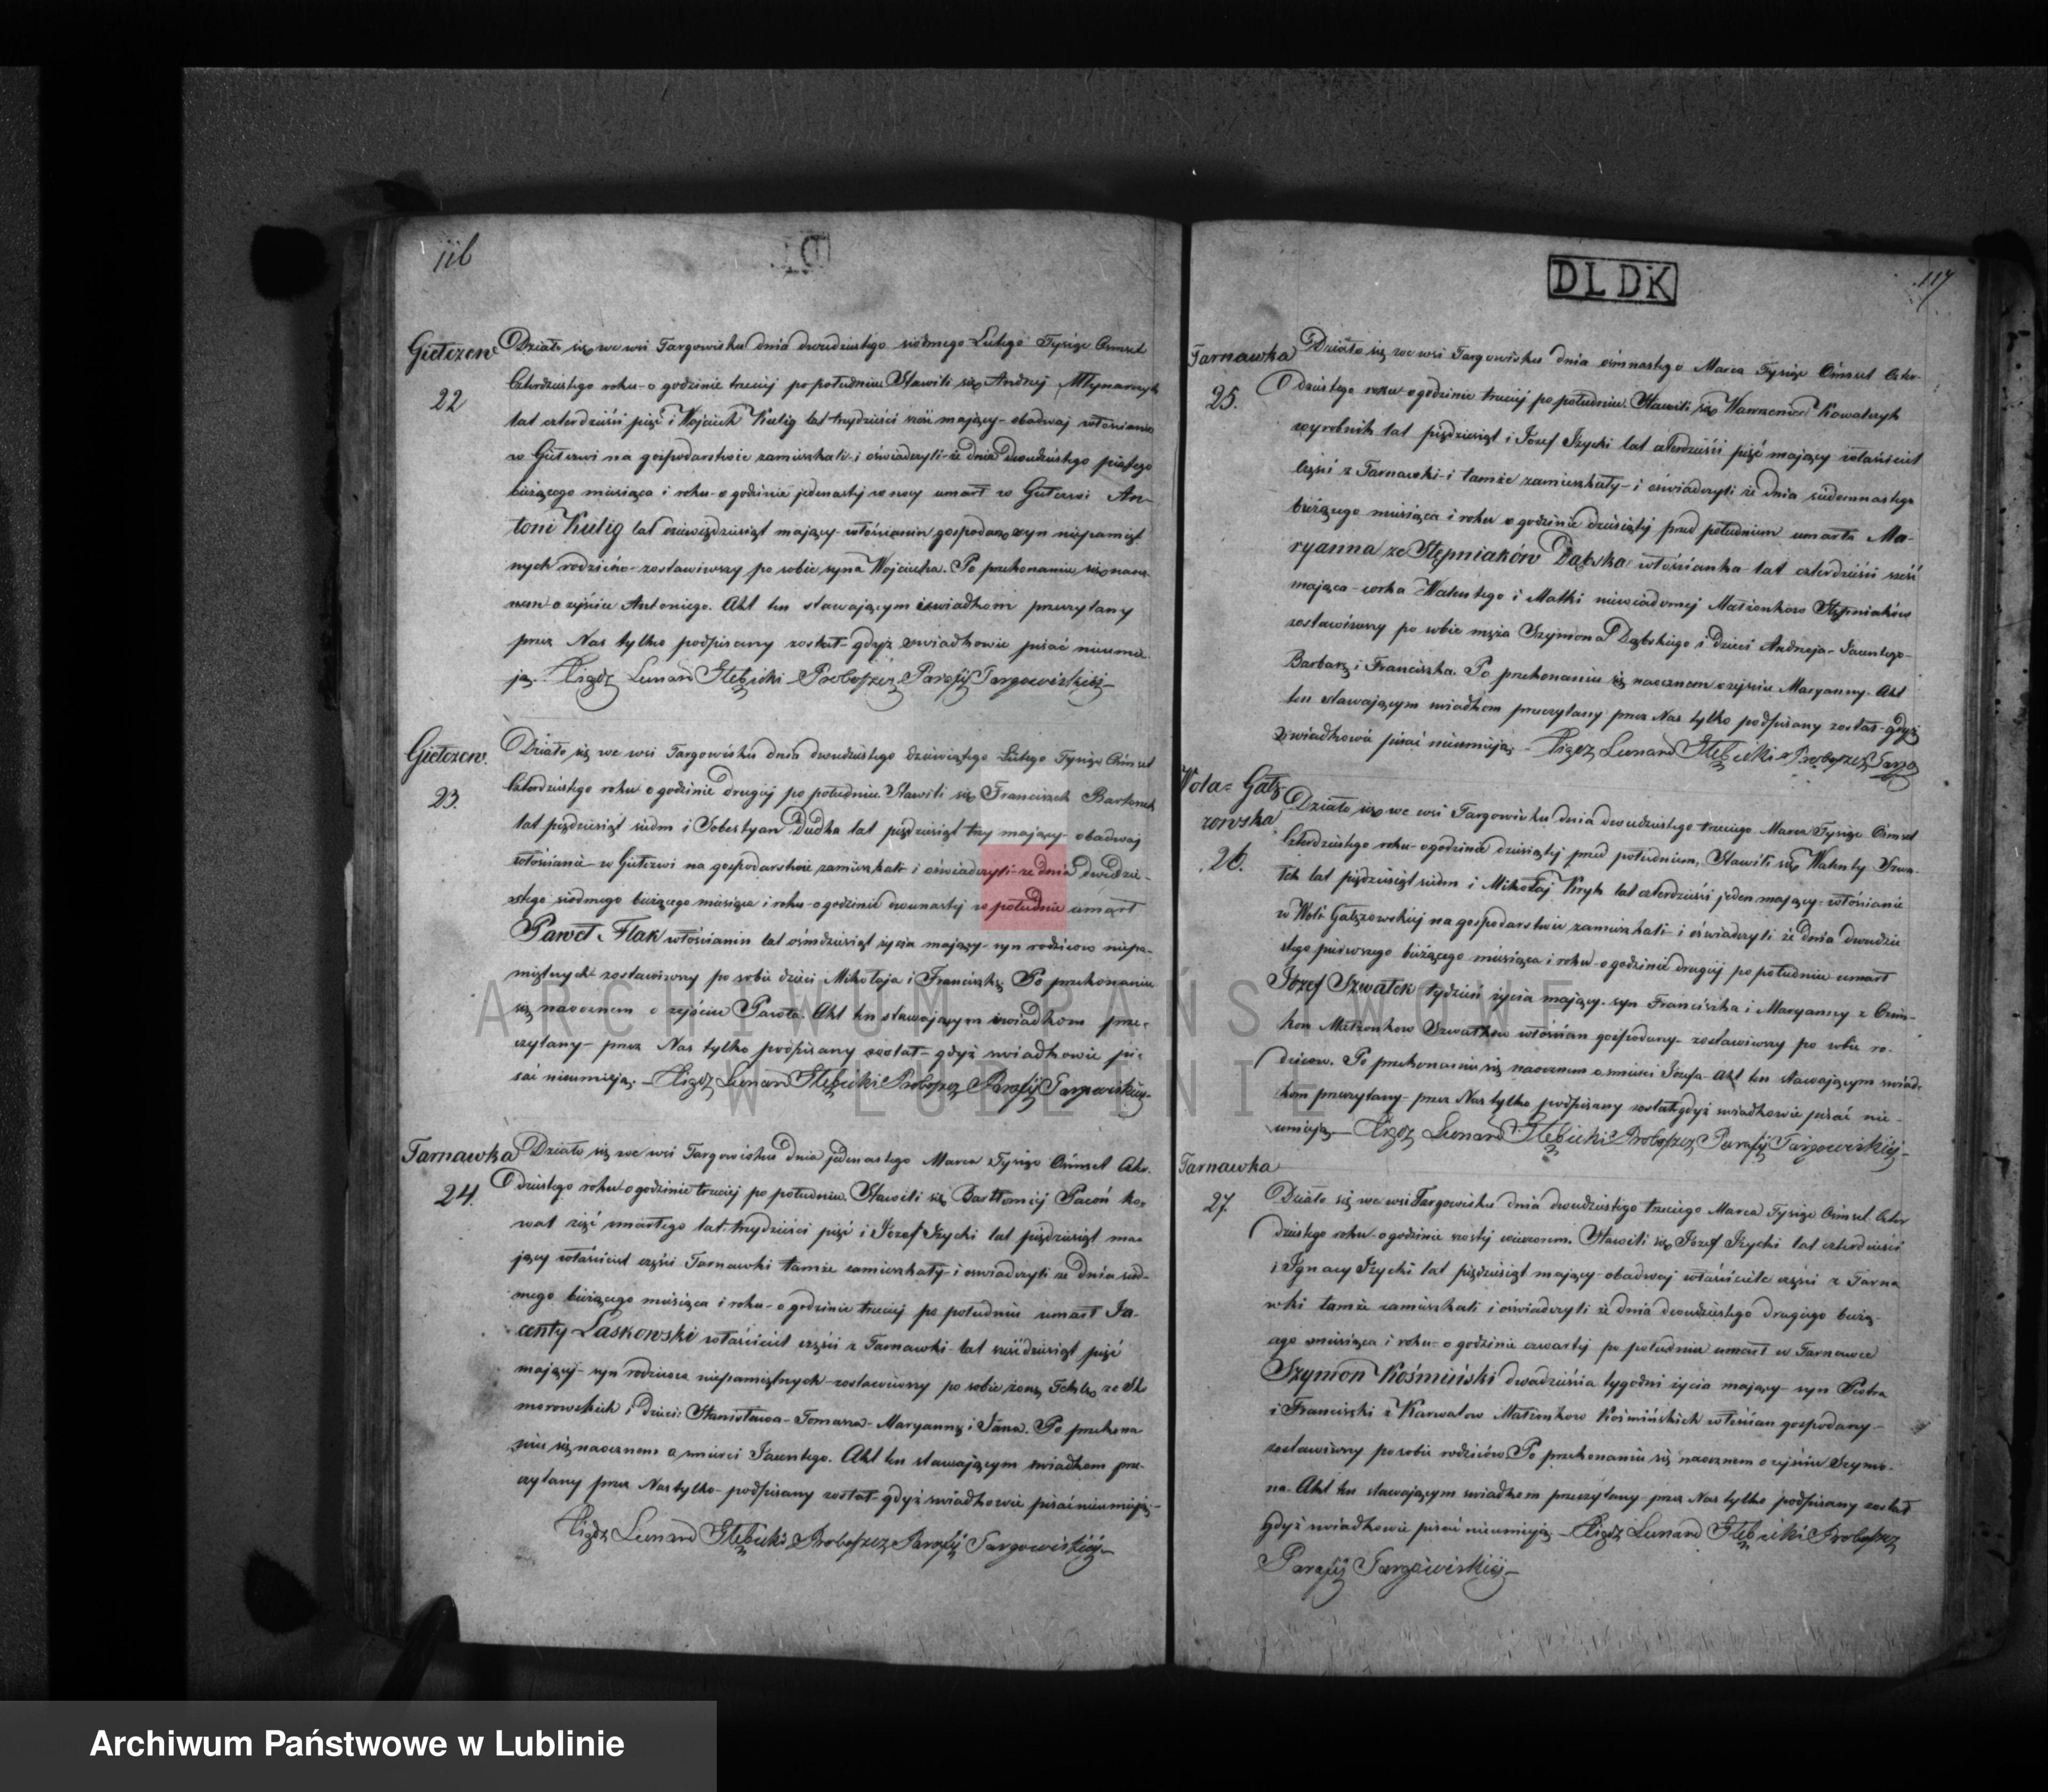 116
Giełczew
22
Działo się we wsi Targowisku dnia dwudziestego siódmego Lutego Tysiąc Ośmset
Czterdziestego roku o godzinie trzeciej po południu. Stawili się Andrzej Młynarczyk
lat czterdzieści pięć i Wojciech Kulig lat trzydzieści sześć mający obadwaj włościanie
w Giełczwi na gospodarstwie zamieszkali i oświadczyli że dnia dwudziestego piątego
bieżącego miesiąca i roku o godzinie jedenastej w nocy umarł w Giełczwi An-
toni Kulig lat dziewięćdziesiąt mający włościanin gospodarz syn niepamięt-
nych rodziców zostawiwszy po sobie syna Wojciecha. Po przekonaniu się naocz-
nem o zejściu Antoniego. Akt ten stawającym świadkom przeczytany
przez Nas tylko podpisany został gdyż świadkowie pisać nieumie-
ją. Xiądz Leonard Głębicki Proboszcz Parafij Targowiskiej
Giełczew.
23.
Działo się we wsi Targowisku dnia dwudziestego dziewiątego Lutego Tysiąc Ośmset
Czterdziestego roku o godzinie drugiej po południu. Stawili się Franciszek Bartosik
lat pięćdziesiąt siedm i Sobestyan Dudka lat pięćdziesiąt trzy mający obadwaj
włościanie w Giełczwi na gospodarstwie zamieszkali i oświadczyli że dnia dwudzie-
stego siódmego bieżącego miesiąca i roku o godzinie dwunastej w południe umarł
Paweł Flak włościanin lat ośmdziesiąt życia mający syn rodziców niepa-
miętnych zostawiwszy po sobie dzieci Mikołaja i Franciszkę. Po przekonaniu
się naocznem o zejściu Pawła. Akt ten stawającym świadkom prze-
czytany przez Nas tylko podpisany został gdyż świadkowie pi-
sać nieumieją. Xiądz Leonard Głębicki Proboszcz Parafij Targowiskiej
Tarnawka
24.
Działo się we wsi Targowisku dnia jedenastego Marca Tysiąc Ośmset Czter-
dziestego roku o godzinie trzeciej po południu. Stawili się Bartłomiej Pacoń ko-
wal zięć umarłego lat trzydzieści pięć i Józef Iżycki lat pięćdziesiąt ma-
jący właściciel części Tarnawki tamże zamieszkały i oświadczyli że dnia siód-
mego bieżącego miesiąca i roku o godzinie trzeciej po południu umarł Ja-
centy Laskowski właściciel części z Tarnawki lat sześćdziesiąt pięć
mający syn rodziców niepamiętnych zostawiwszy po sobie żonę Teklę ze Sko
morowskich i dzieci: Stanisława Tomasza Maryannę i Jana. Po przekona
niu się naocznem o śmierci Jacentego. Akt ten stawającym świadkom prze-
czytany przez Nas tylko podpisany został gdyż świadkowie pisać nieumieją.
Xiądz Leonard Głębicki Proboszcz Parafij Targowiskiej
DLDK
117
Tarnawka
25.
Działo się we wsi Targowisku dnia ośmnastego Marca Tysiąc Ośmset Czter-
dziestego roku o godzinie trzeciej po południu. Stawili się Wawrzeniec Kowalczyk
wyrobnik lat pięćdziesiąt i Józef Iżycki lat czterdzieści pięć mający właściciel
części z Tarnawki i tamże zamieszkały i oświadczyli że dnia siedemnastego
bieżącego miesiąca i roku o godzinie dziesiątej przed południem umarła Ma-
ryanna ze Stępniaków Dąbska włościanka lat czterdzieści sześć
mająca corka Walentego i Matki niewiadomej Małżonków Stępniaków
zostawiwszy po sobie męża Szymona Dąbskiego i dzieci Andrzeja Jacentego
Barbarę i Franciszka. Po przekonaniu się naocznem o zejściu Maryanny. Akt
ten stawającym świadkom przeczytany przez Nas tylko podpisany został gdyż
świadkowie pisać nieumieją. Xiądz Leonard Głębicki Proboszcz Para
Wola Gałę
zowska
26.
Działo się we wsi Targowisku dnia dwudziestego trzeciego Marca Tysiąc Ośmset
Czterdziestego roku o godzinie dziesiątej przed południem. Stawili się Walenty
lat pięćdziesiąt siedm i Mikołaj Kryk lat czterdzieści jeden mający włościanie
w Woli Gałęzowskiej na gospodarstwie zamieszkali i oświadczyli że dnia dwudzie
stego pierwszego bieżącego miesiąca i roku o godzinie drugiej po południu umarł
Józef Szwałek tydzień życia mający syn Franciszka i Maryanny z
Małżonków Szwałków włościan gospodarzy zostawiwszy po sobie ro-
dziców. Po przekonaniu się naocznem o śmierci Józefa. Akt ten stawającym świad-
kom przeczytany przez Nas tylko podpisany został gdyż świadkowie pisać nie-
umieją. Xiądz Leonard Głębicki Proboszcz Parafij Targowiskiej
Tarnawka
27.
Działo się we wsi Targowisku dnia dwudziestego trzeciego Marca Tysiąc Ośmset Czter
dziestego roku o godzinie szóstej wieczorem. Stawili się Józef Iżycki lat czterdzieści
i Ignacy Iżycki lat pięćdziesiąt mający obadwaj właściciele części z Tarna
wki tamże zamieszkali i oświadczyli że dnia dwudziestego drugiego bieżą-
cego miesiąca i roku o godzinie czwartej po południu umarł w Tarnawce
Szymon Kośmiński dwadzieścia tygodni życia mający syn Piotra
i Franciszki z Karwatow Małżonków Kośmińskich włościan gospodarzy
zostawiwszy po sobie rodziców. Po przekonaniu się naocznem o zejściu Szymo-
na. Akt ten stawającym świadkom przeczytany przez Nas tylko podpisany został
gdyż świadkowie pisać nieumieją. Xiądz Leonard Głębicki Proboszcz
Parafij Targowiskiej
ARCHIWUM PAŃSTWOWE
W LUBLINIE
Archiwum Państwowe w Lublinie